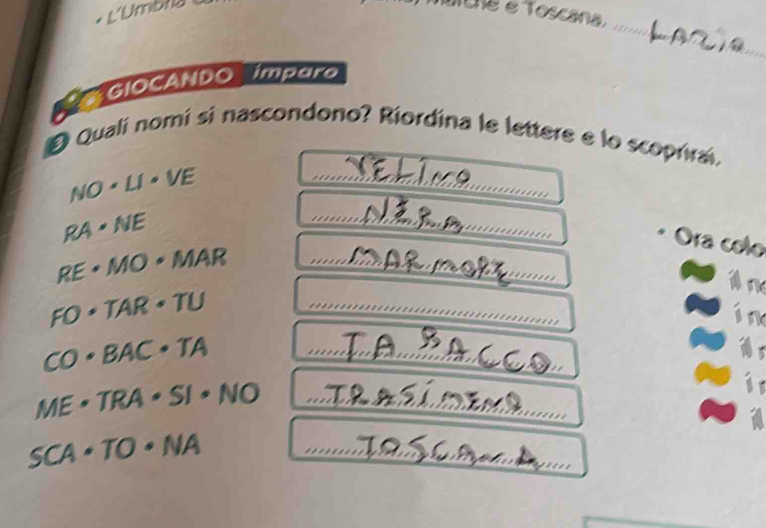 • L'Umbria
e Toscana. LAZIO
GIOCANDO imparo
3 Quali nomi si nascondono? Riordina le lettere e lo scoprirai.
NO • LI • VE VELINO
RA • NE NERA
RE • MO • MAR MARMORE
FO • TAR • TU
CO • BAC • TA TABACCO
ME • TRA • SI • NO TRASIMENO
SCA • TO • NA TOSCANA
• Ora colo
il
in
il
il